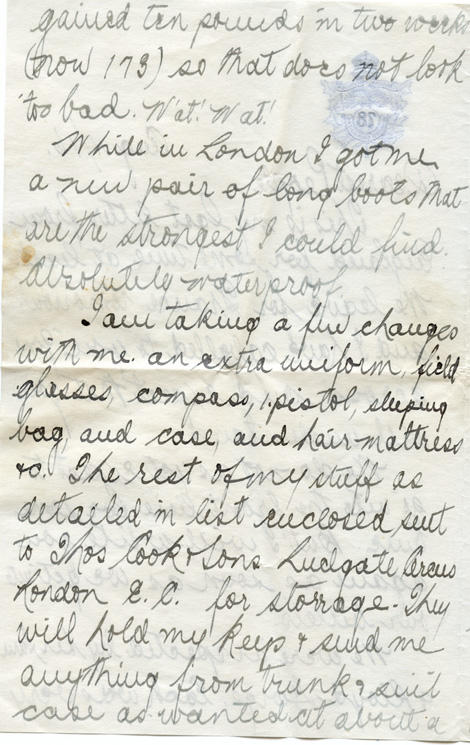 gained ten pounds in two weeks
(now 173) so that does not look
too bad. Wat! Wat!
While in London I got me
a new pair of long boots that
are the strongest I could find.
Absolutely waterproof.
I am taking a few changes
with me. an extra uniform, field
glasses, compass, 1. pistol, sleeping
bag, and case, and hair mattress
&c. The rest of my stuff as
detailed in list enclosed sent
to Thos Cook & Sons Ludgate Circus
London E. C. for storrage. They
will hold my keys & send me
anything from trunk & suit
case as wanted at about a